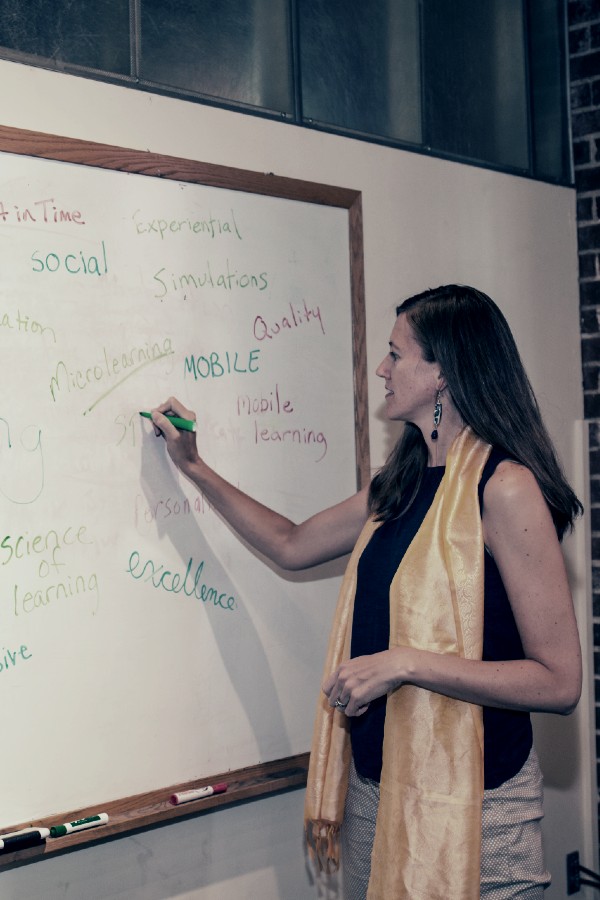 in Time
Experiential
social
Simulations
Quality
Microlearning
MOBILE
Mobile
learning
science
of
learning
excellence